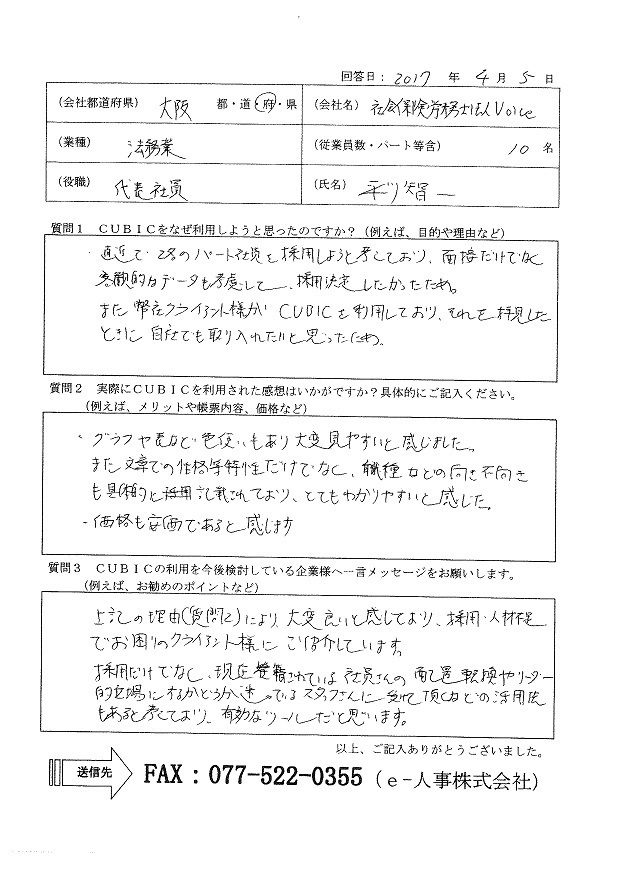 回答日：2017 年 4 月 5 日
（会社都道府県） 大阪 都・道・府・県 （会社名） 社会保険労務士法人Voice
（業種） 法務業 （従業員数・パート等含） 10 名
（役職） 代表社員 （氏名） 智一
質問１ ＣＵＢＩＣをなぜ利用しようと思ったのですか？（例えば、目的や理由など）
・直近で2名のパート社員を採用しようと考えており、面接だけでなく
客観的なデータも考慮して、採用決定したかったため。
また弊社クライアント様がCUBICを利用しており、それを拝見した
ときに自社でも取り入れたいと思ったため。
質問２ 実際にＣＵＢＩＣを利用された感想はいかがですか？具体的にご記入ください。
（例えば、メリットや帳票内容、価格など）
・グラフや表など色使いもあり大変見やすいと感じました。
また文章での性格等特性だけでなく、職種などの向き不向き
も具体的に記載されており、とてもわかりやすいと感じた。
・価格も安価であると感じます
質問３ ＣＵＢＩＣの利用を今後検討している企業様へ一言メッセージをお願いします。
（例えば、お勧めのポイントなど）
上記の理由(質問2)により、大変良いと感じており、採用・人材不足
でお困りのクライアント様にご紹介しています。
採用だけでなく、現在されている社員さんの配置転換やリーダー
的立場にするかどうか迷っているスタッフさんに受けて頂くなどの活用法
もあると考えており、有効なツールだと思います。
以上、ご記入ありがとうございました。
送信先 FAX：077-522-0355（ｅ-人事株式会社）